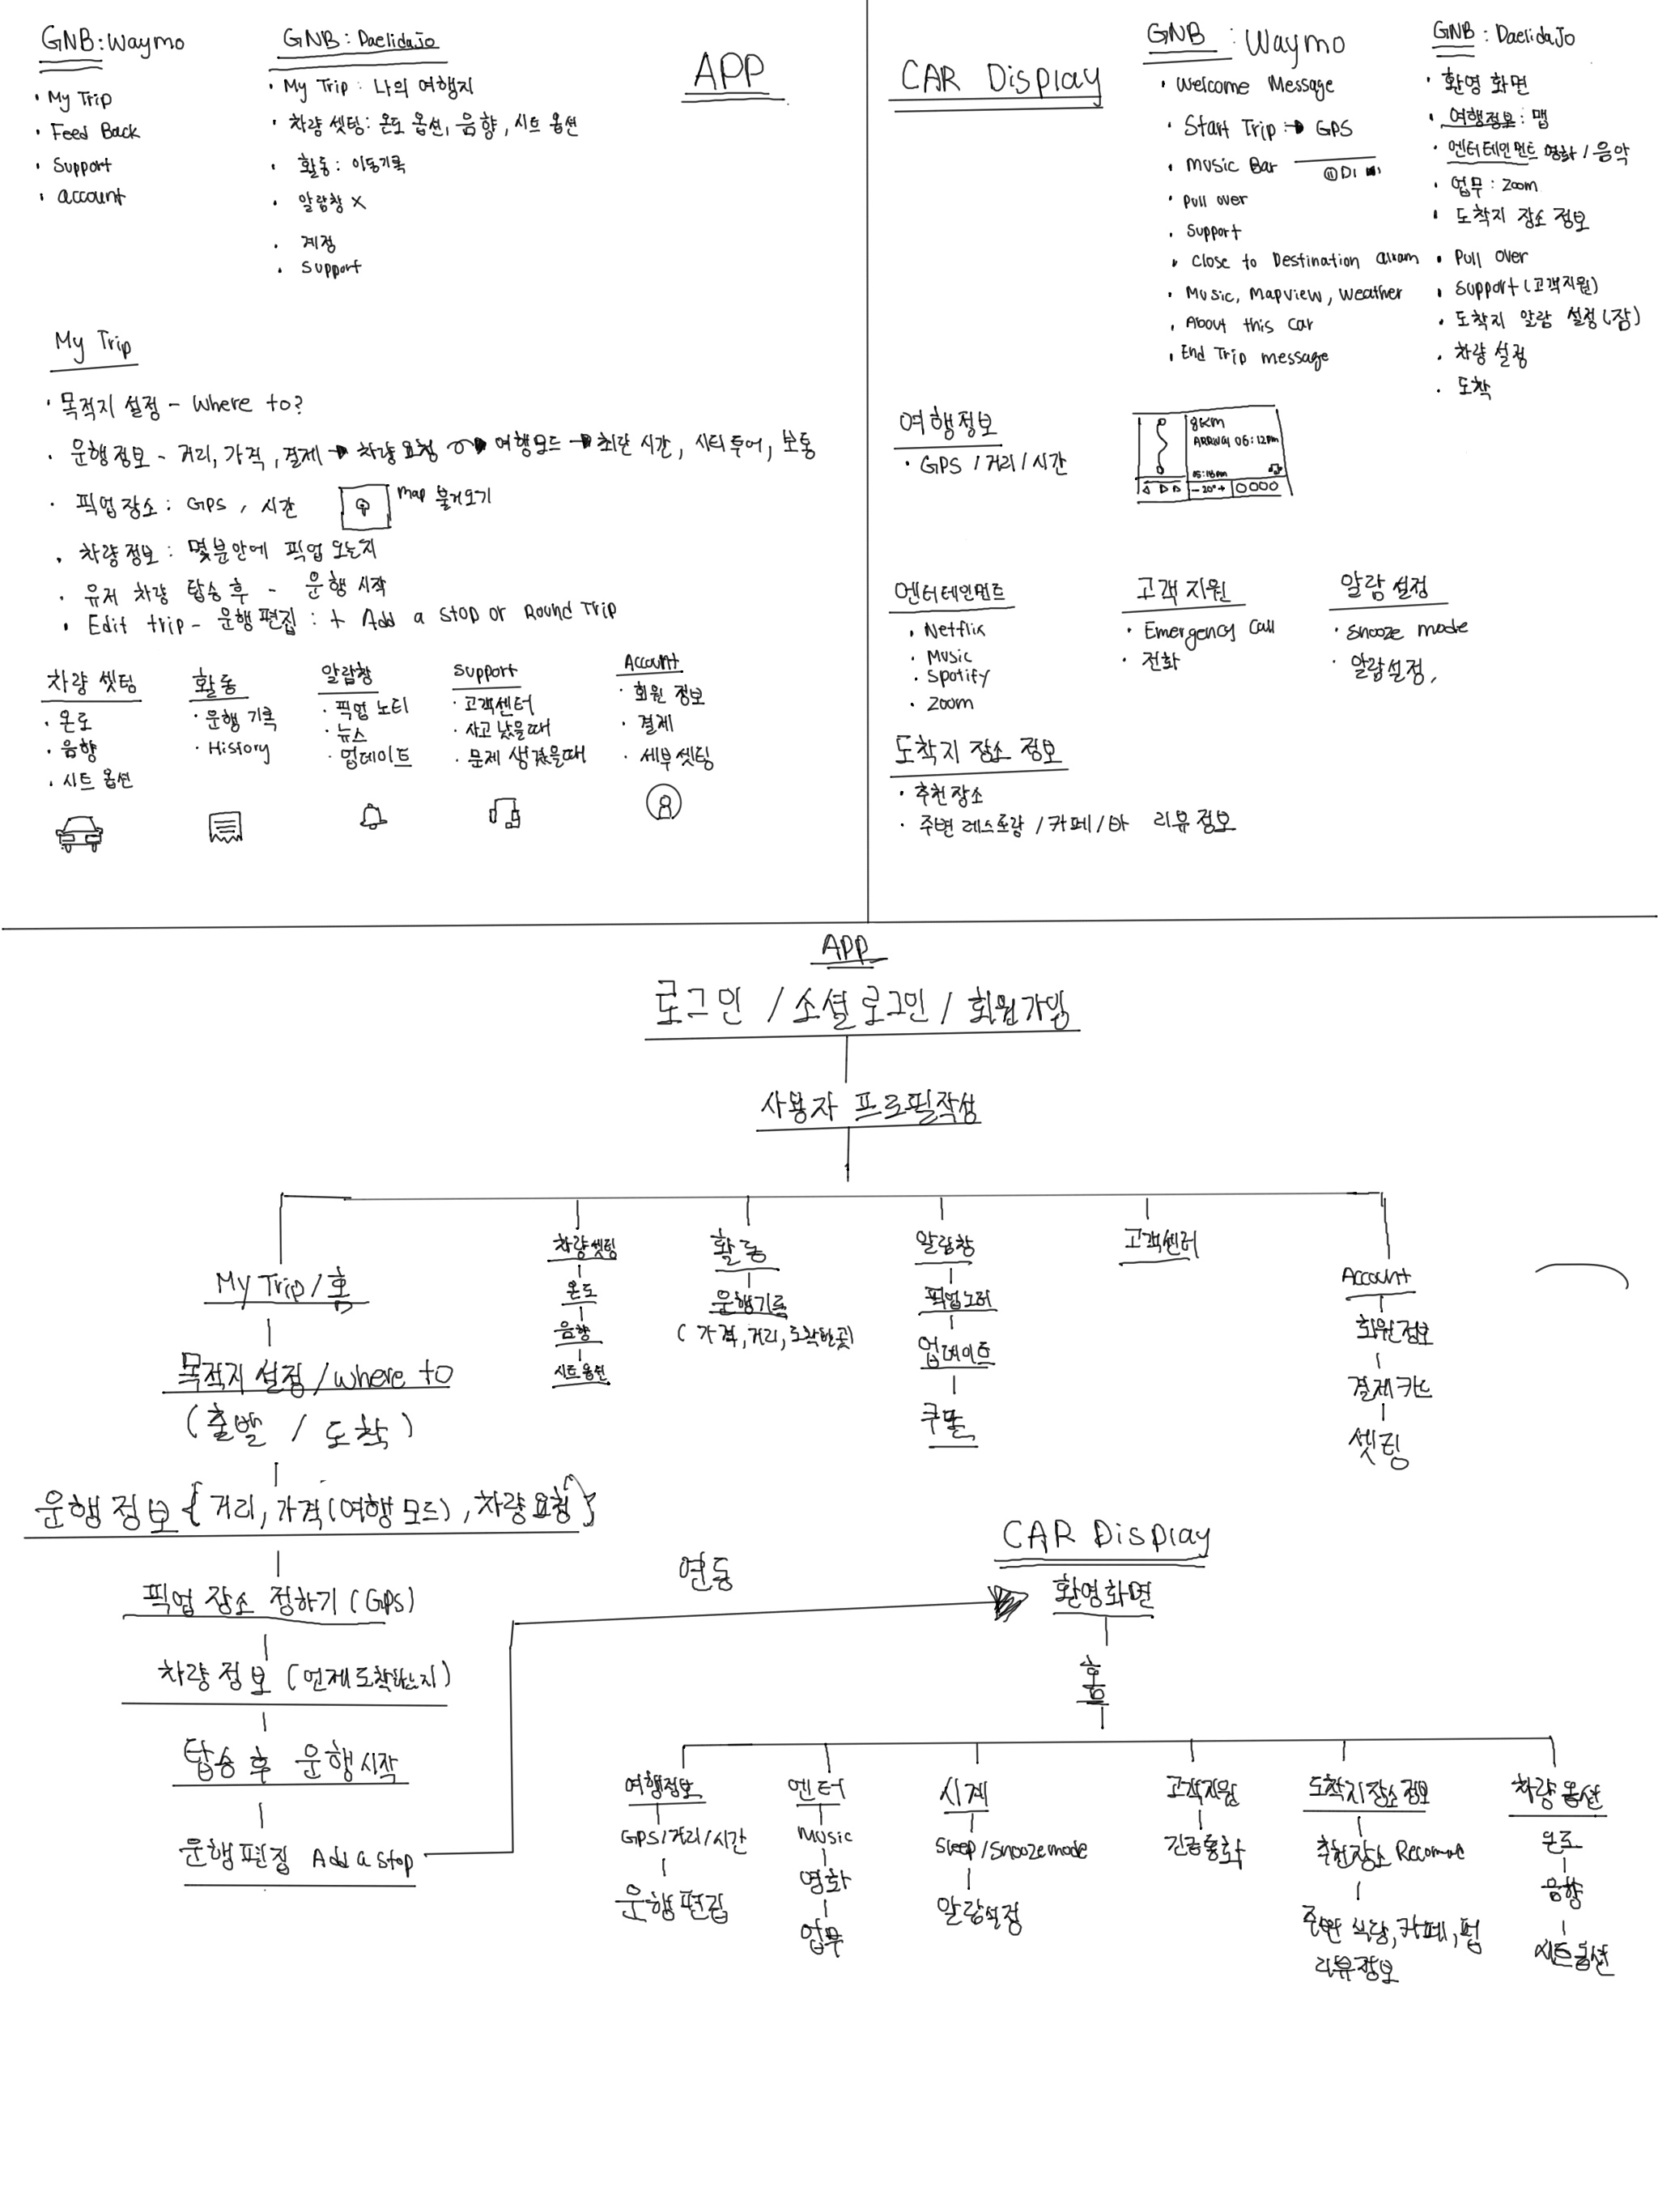 GNB: Waymo
· My Trip
· Feed Back
· Support
· account
GNB: DaelidaJo
· My Trip : 나의 여행지
· 차량 셋팅: 온도 옵션, 음향, 시트 옵션
· 활동: 이동기록
· 알람창 X
· 계정
· Support
APP
My Trip
· 목적지 설정 - Where to?
· 운행정보 - 거리, 가격, 결제 → 차량요청 → 여행모드 → 최단 시간, 시티투어, 보통
· 픽업 장소 : GPS, 시간
map 불러오기
· 차량정보 : 몇분안에 픽업 오는지
· 유저 차량 탑승 후 - 운행 시작
· Edit trip - 운행편집 : + Add a stop or Round Trip
차량 셋팅
· 온도
· 음향
· 시트 옵션
활동
· 운행 기록
· History
알람창
· 픽업 노티
· 뉴스
· 업데이트
Support
· 고객센터
· 사고 났을때
· 문제 생겼을때
Account
· 회원 정보
· 결제
· 세부셋팅
CAR Display
GNB : Waymo
· Welcome Message
· Start Trip : → GPS
· Music Bar
· Pull over
· Support
· Close to Destination alram
· Music, Mapview, Weather
· About this car
· End Trip message
GNB : DaelidaJo
· 환영 화면
· 여행정보 : 맵
· 엔터테인먼트 영화 / 음악
· 업무 : Zoom
· 도착지 장소 정보
· Pull over
· Support (고객지원)
· 도착지 알람 설정 (잠)
· 차량 설정
· 도착
여행정보
· GPS / 거리 / 시간
8KM
ARRIVAL 06:12pm
05:18pm
- 20° +
엔터테인먼트
· Netflix
· Music
· Spotify
· Zoom
고객 지원
· Emergency Call
· 전화
알람 설정
· Snooze mode
· 알람설정,
도착지 장소 정보
· 추천장소
· 주변 레스토랑 / 카페 / 바 리뷰 정보
APP
로그인 / 소셜로그인 / 회원가입
사용자 프로필작성
My Trip / 홈
목적지 설정 / Where to
(출발 / 도착)
운행정보 { 거리, 가격(여행 모드), 차량요청 }
픽업 장소 정하기 (GPS)
차량정보 (언제도착하는지)
탑승 후 운행시작
운행편집 Add a stop
차량셋팅
온도
음향
시트옵션
활동
운행기록
(가격, 거리, 도착한곳)
알람창
픽업노티
업데이트
쿠폰
고객센터
Account
회원정보
결제카드
셋팅
연동
CAR Display
환영화면
홈
여행정보
GPS/거리/시간
운행편집
엔터
Music
영화
업무
시계
Sleep/Snooze mode
알람설정
고객지원
긴급통화
도착지장소정보
추천장소
주변 식당, 카페, 펍
리뷰정보
차량옵션
온도
음향
시트옵션